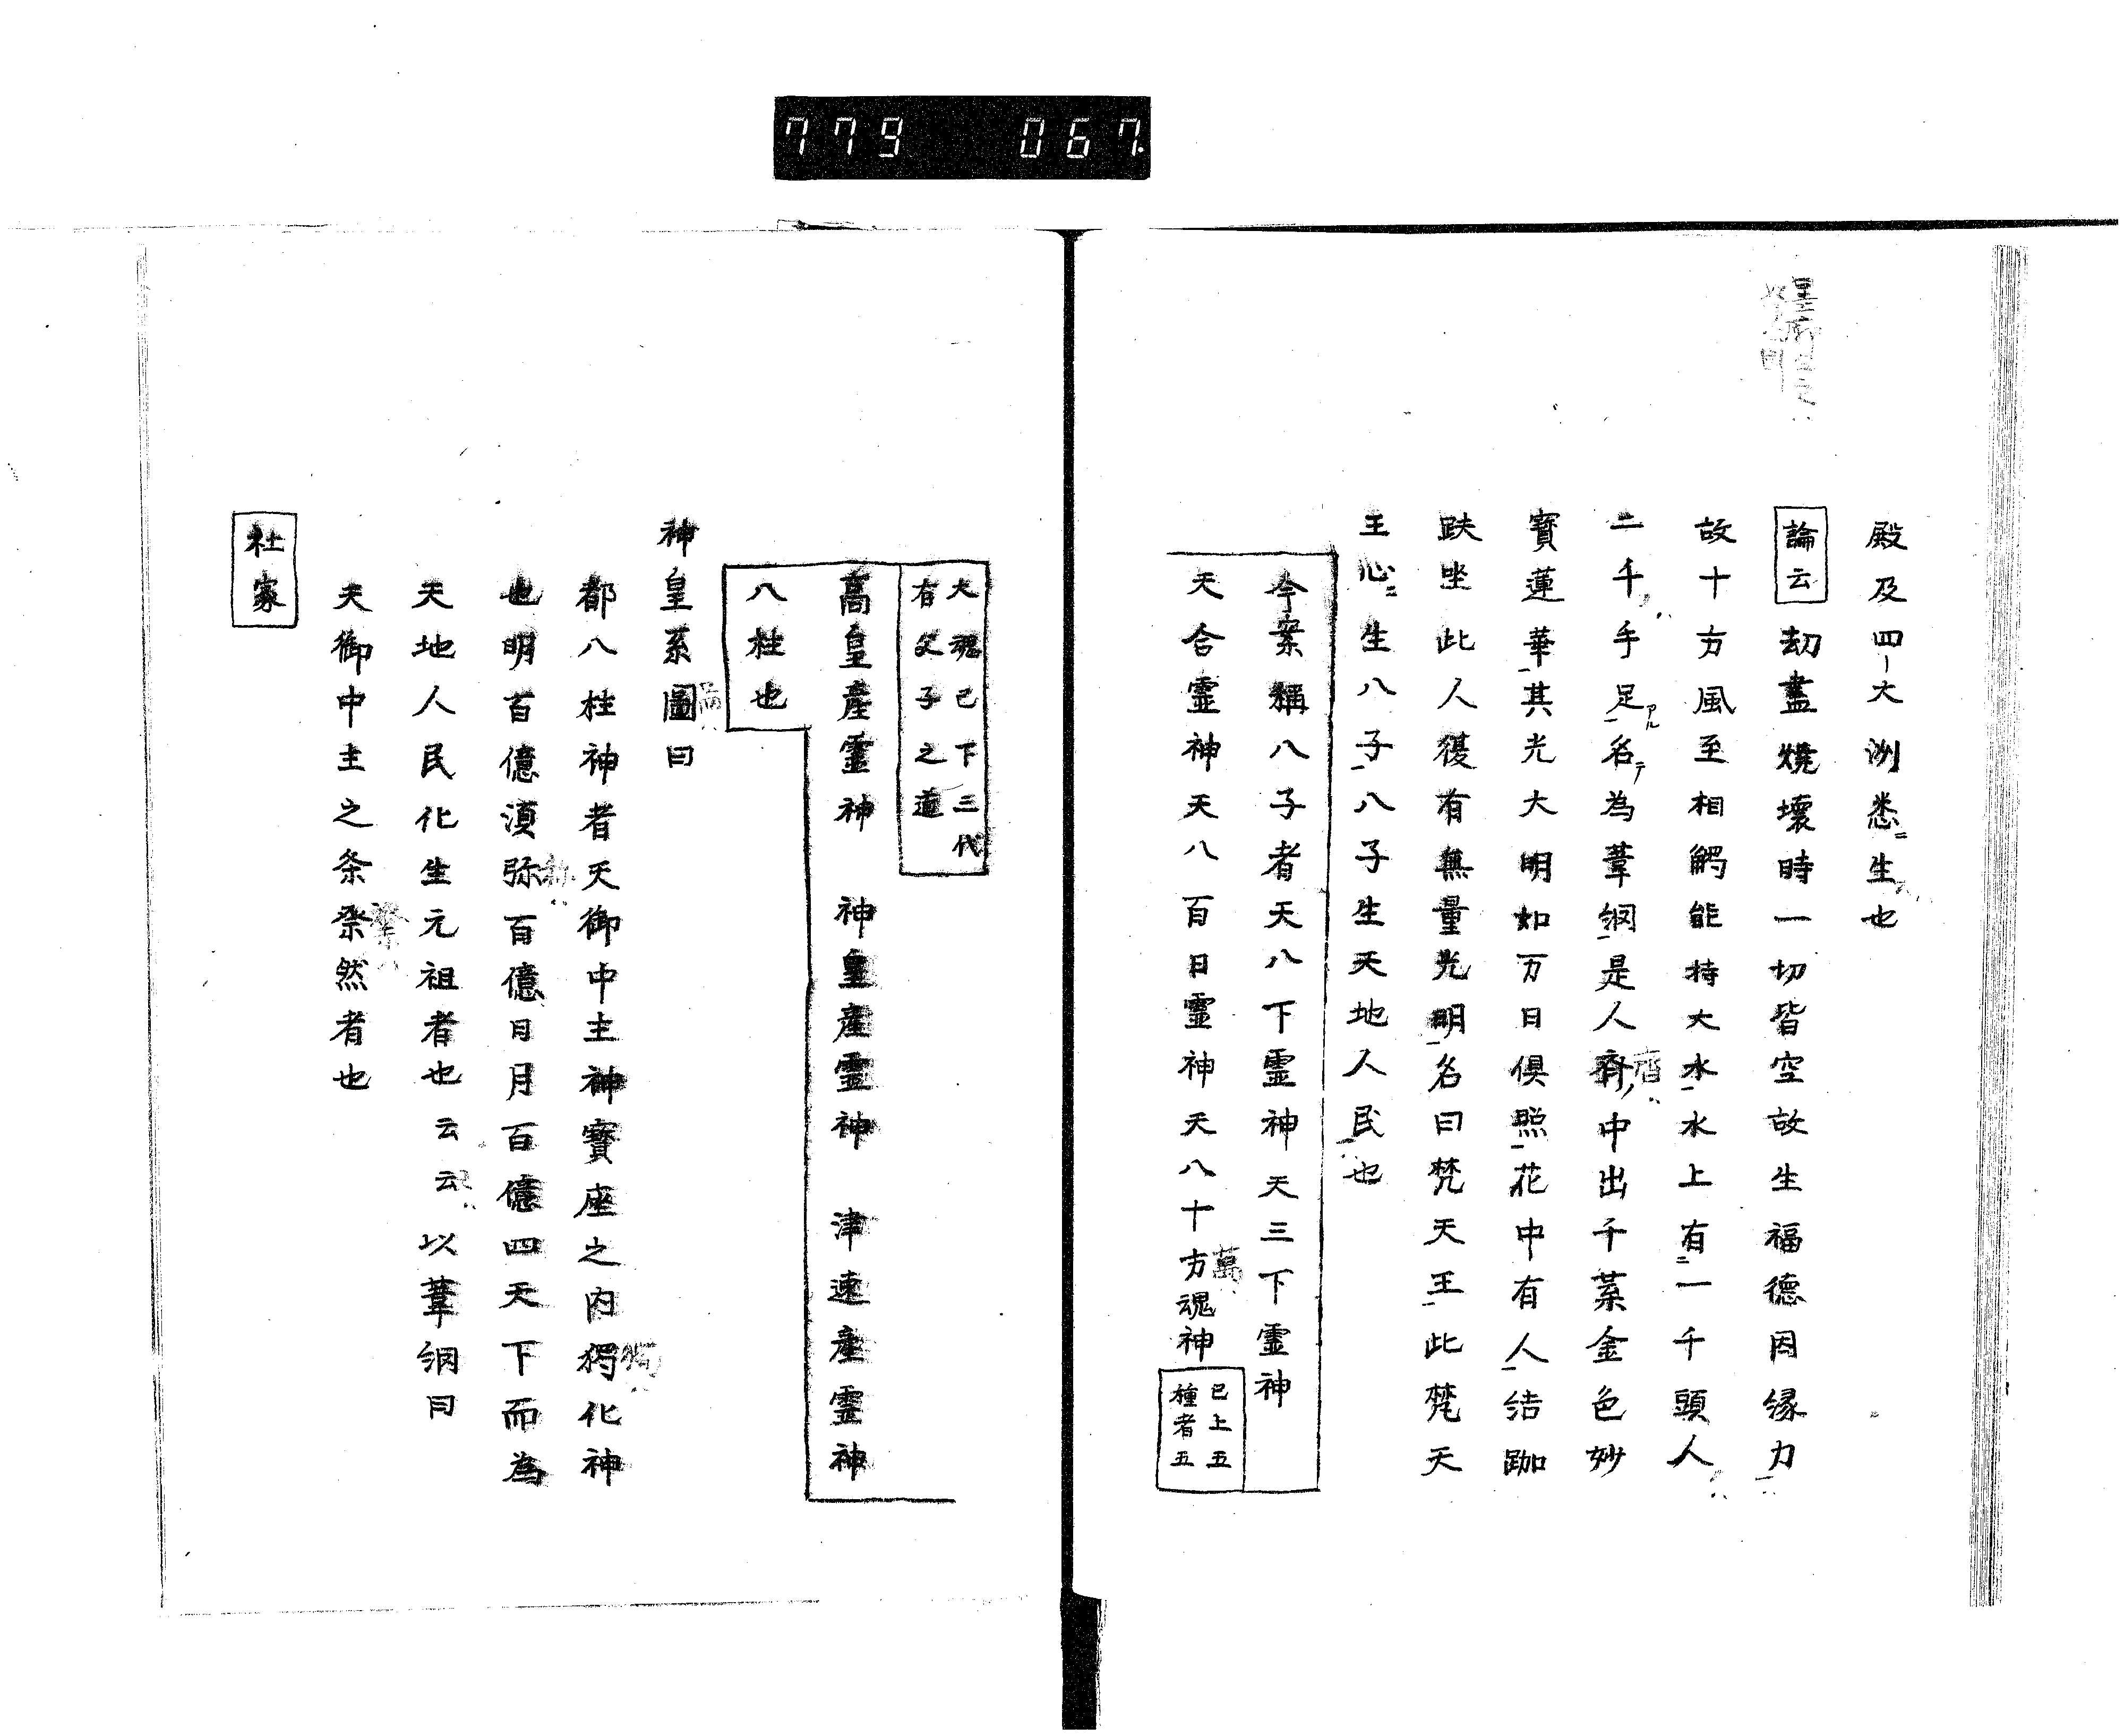 779 067
殿及四大洲悉ニ生也
論云劫盡燒壞時一切皆空故生福德因縁力
故十方風至相觸能持大水水上有ニ一千頭人
二千手足アル名テ為葦綱是人齊中出千葉金色妙
寶蓮華其光大明如万日倶照花中有人結跏
趺坐此人復有無量光明名曰梵天王此梵天
王心ニ生八子八子生天地人民也
今案稱八子者天八下霊神天三下霊神
天合霊神天八百日霊神天八十方魂神
萬
已上五
種者五
大魂已下三代
有父子之道
高皇産霊神 神皇産霊神 津速産霊神
八柱也
神皇系圖曰
都八柱神者天御中主神寶座之内獨化神
也明百億湏弥百億日月百億四天下而為
天地人民化生元祖者也云云以葦綱曰
天御中主之条祭然者也
社家